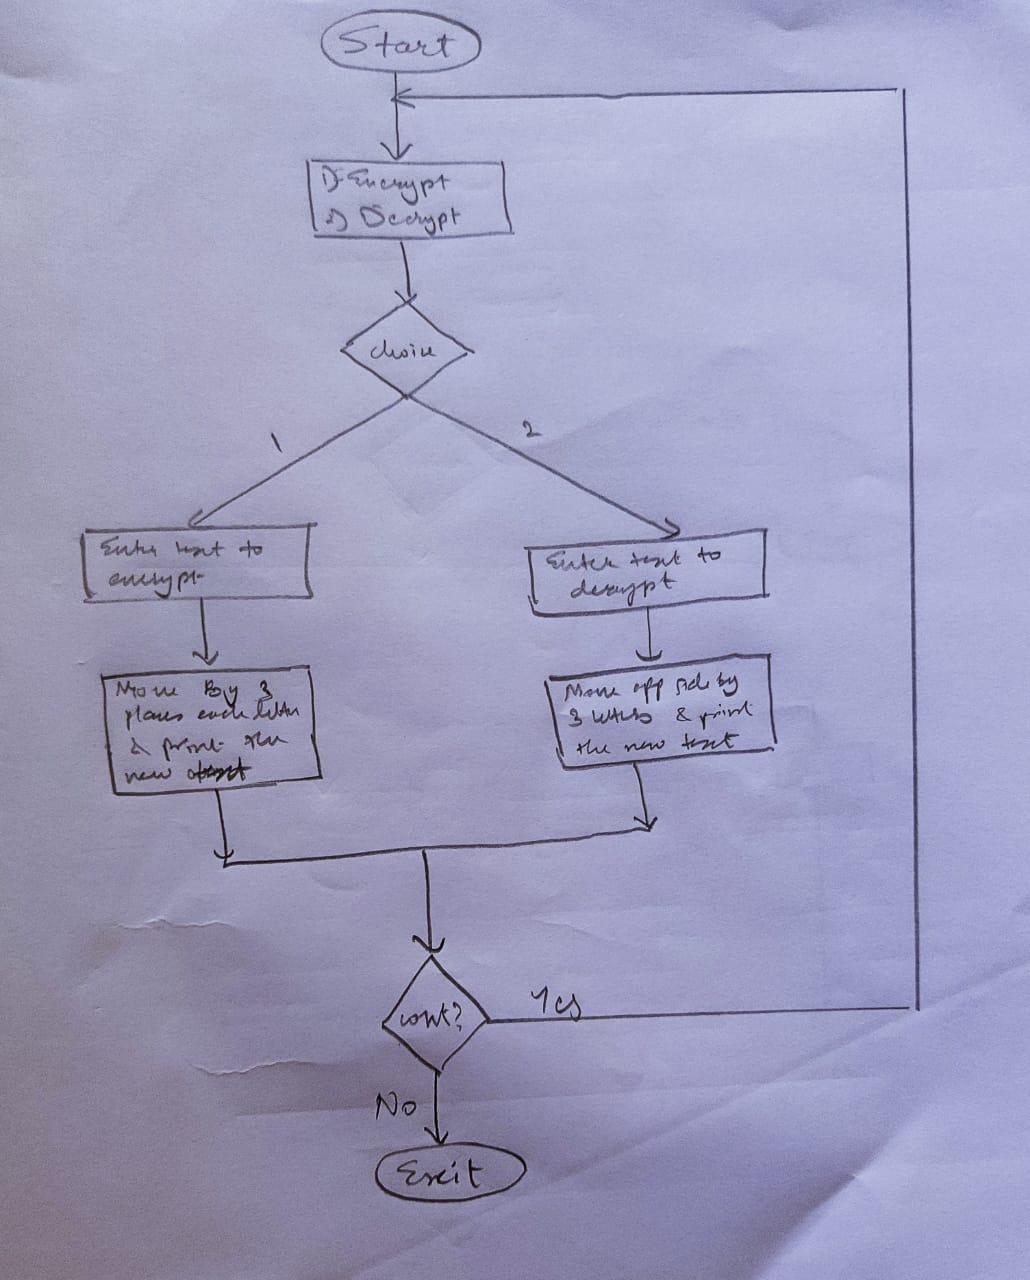 Start
1) Encrypt
2) Decrypt
choice
1
2
Enter text to
encrypt
Enter text to
decrypt
Move By 3
places each letter
& print the
new text
Move opp side by
3 letters & print
the new text
cont?
Yes
No
Exit